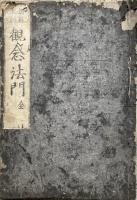 観念法門 全